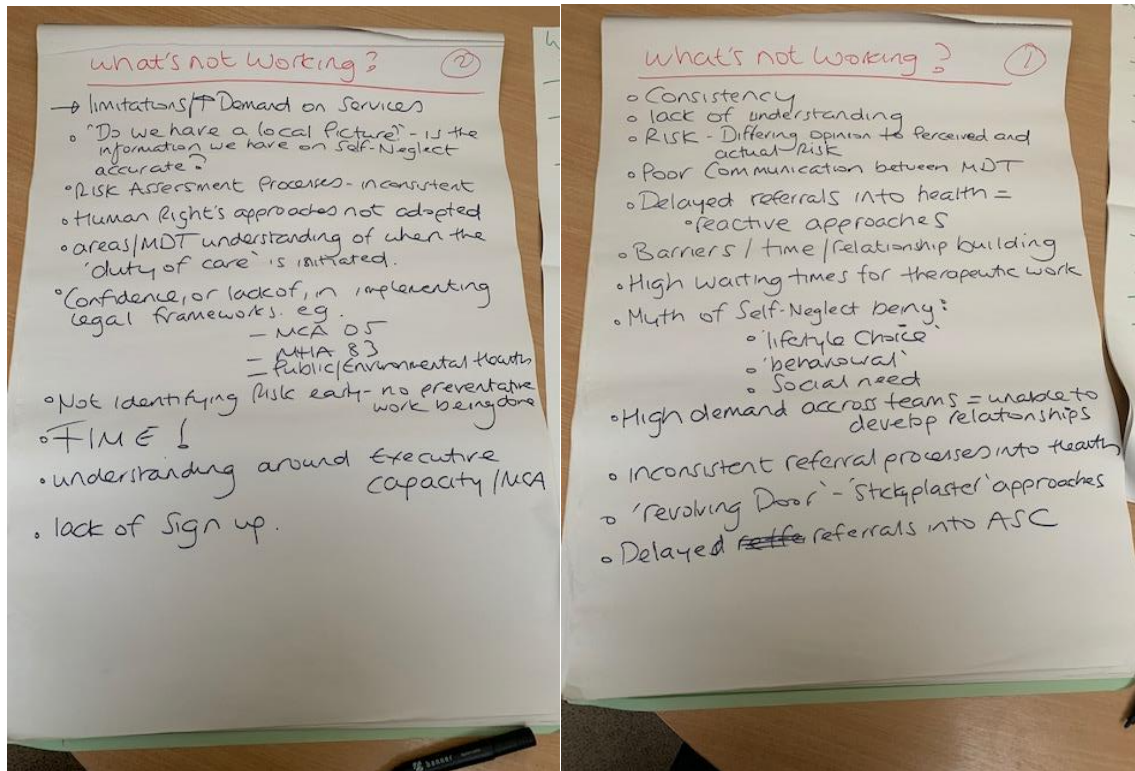 what's not working? ②
→ limitations/↑ Demand on Services
• "Do we have a local Picture?" - is the
information we have on Self-Neglect
accurate?
• Risk Assessment Processes - inconsistent
• Human Right's approaches not adopted
• areas/MDT understanding of when the
'duty of care' is initiated.
• Confidence, or lack of, in implementing
legal frameworks. eg.
- MCA 05
- MHA 83
- Public/Environmental Health
• Not identifying Risk early - no preventative
work being done
• TIME!
• understanding around Executive
capacity/MCA
• lack of sign up.
banner
what's not working? ①
• Consistency
• lack of understanding
• Risk - Differing opinion to Perceived and
actual Risk
• Poor Communication between MDT
• Delayed referrals into health =
• reactive approaches
• Barriers / time / relationship building
• High waiting times for therapeutic work
• Myth of Self-Neglect being:
• 'lifestyle Choice'
• 'behavioural'
• Social need
• High demand accross teams = unable to
develop relationships
• Inconsistent referral processes into Health
• 'revolving Door' - 'Stickyplaster' approaches
• Delayed referrals into ASC